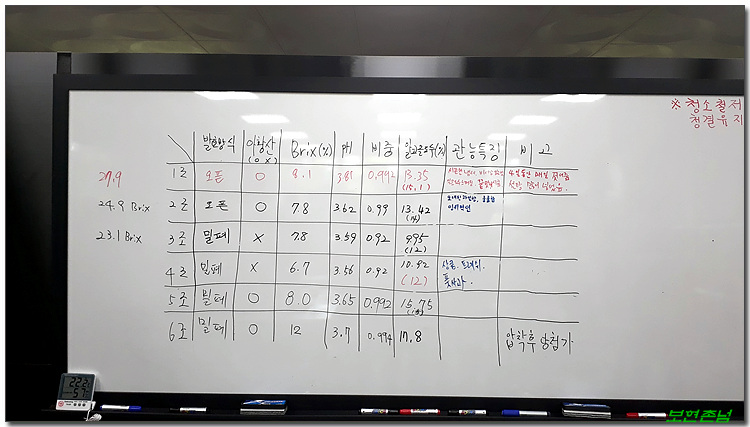 ※ 청소철저
청결유지
발효방식 아황산 (O X) Brix(%) PH 비중 알코올도수(%) 관능특징 비고
27.9 1조 오픈 O 8.1 3.81 0.992 13.35 (15.1)
24.9 Brix 2조 오픈 O 7.8 3.62 0.99 13.42
23.1 Brix 3조 밀폐 X 7.8 3.59 0.92 9.95 (12)
4조 밀폐 X 6.7 3.56 0.92 10.92 (12) 상큼, 풋사과.
5조 밀폐 O 8.0 3.65 0.992 15.75
6조 밀폐 O 12 3.7 0.994 17.8 압착후 당첨가
보현존넘